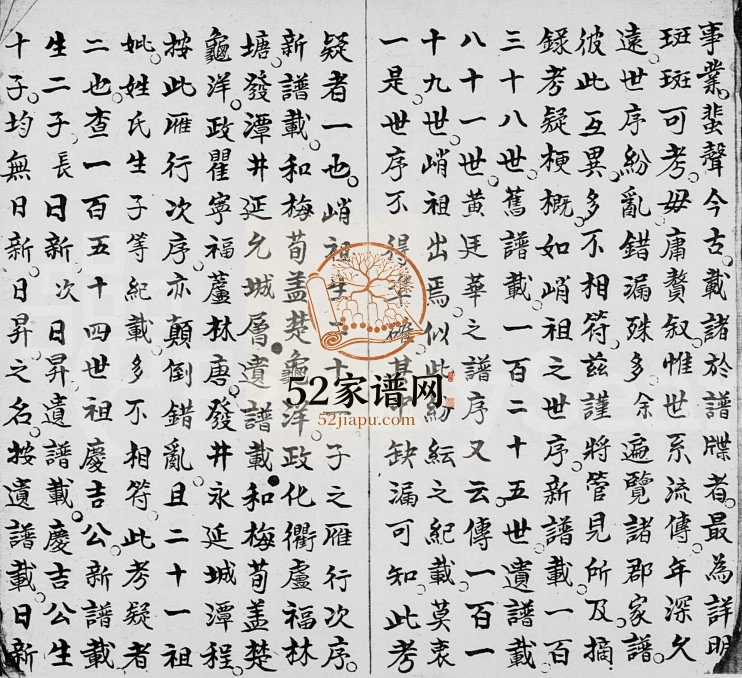 事業蜚聲今古載諸於譜牒者最為詳明
班班可考毋庸贅叙惟世系流傳年深久
遠世序紛亂錯漏殊多余遍覽諸郡家譜
彼此互異多不相符茲謹將管見所及摘
錄考疑梗概如峭祖之世序新譜載一百
三十八世舊譜載一百二十五世遺譜載
八十一世黃廷華之譜序又云傳一百一
十九世峭祖出焉似此紛紜之紀載莫衷
一是世序不得準確其中缺漏可知此考
疑者一也峭祖生二十一子之雁行次序
新譜載和梅荀盖楚龜洋政化衢盧福林
塘發潭井延允城層遺譜載和梅荀盖楚
龜洋政瞿寧福蘆林唐發井永延城潭程
按此雁行次序亦顛倒錯亂且二十一祖
妣姓氏生子等紀載多不相符此考疑者
二也查一百五十四世祖慶吉公新譜載
生二子長日新次日昇遺譜載慶吉公生
十子均無日新日昇之名按遺譜載日新
52家谱网
52jiapu.com